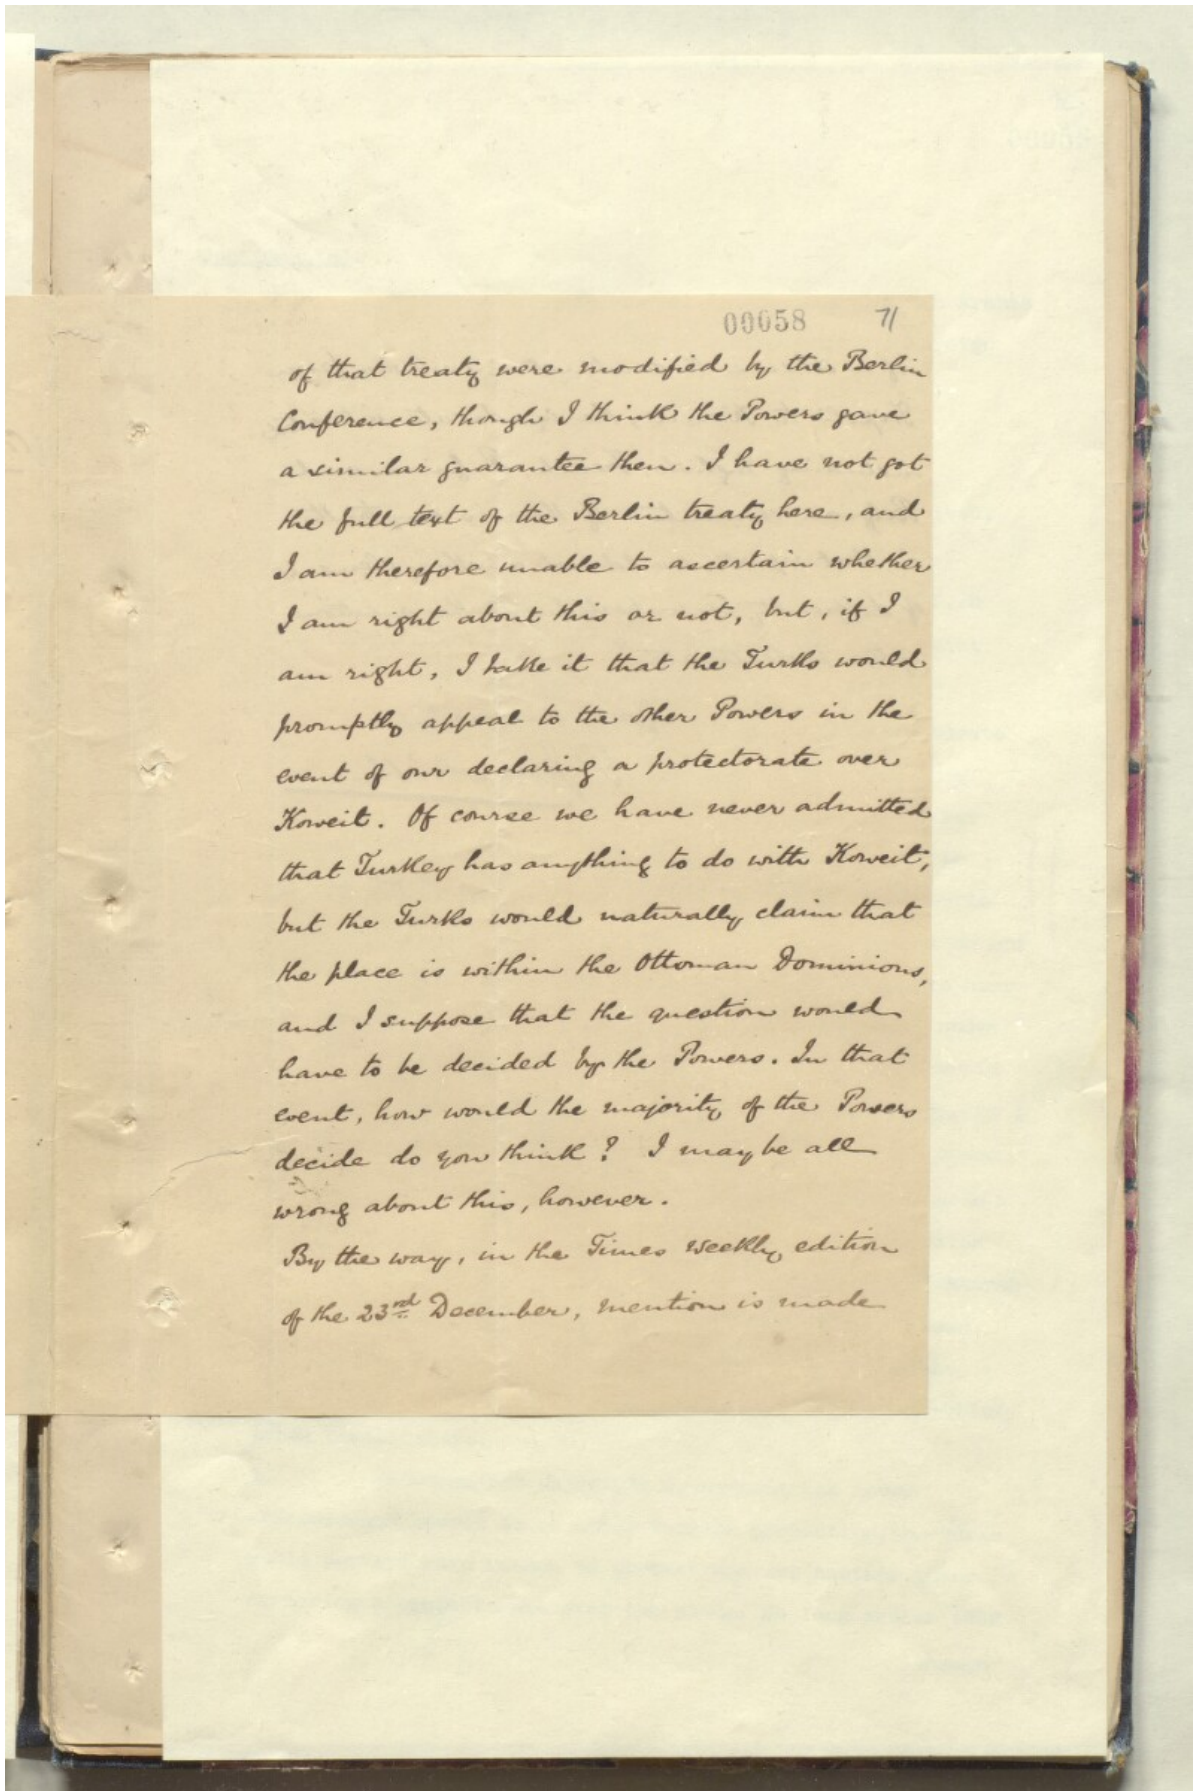 00058 71
of that treaty were modified by the Berlin
Conference, though I think the Powers gave
a similar guarantee then. I have not got
the full text of the Berlin treaty here, and
I am therefore unable to ascertain whether
I am right about this or not, but, if I
am right, I take it that the Turks would
promptly appeal to the other Powers in the
event of our declaring a protectorate over
Koweit. Of course we have never admitted
that Turkey has anything to do with Koweit,
but the Turks would naturally claim that
the place is within the Ottoman Dominions,
and I suppose that the question would
have to be decided by the Powers. In that
event, how would the majority of the Powers
decide do you think? I may be all
wrong about this, however.
By the way, in the Times weekly edition
of the 23rd December, mention is made